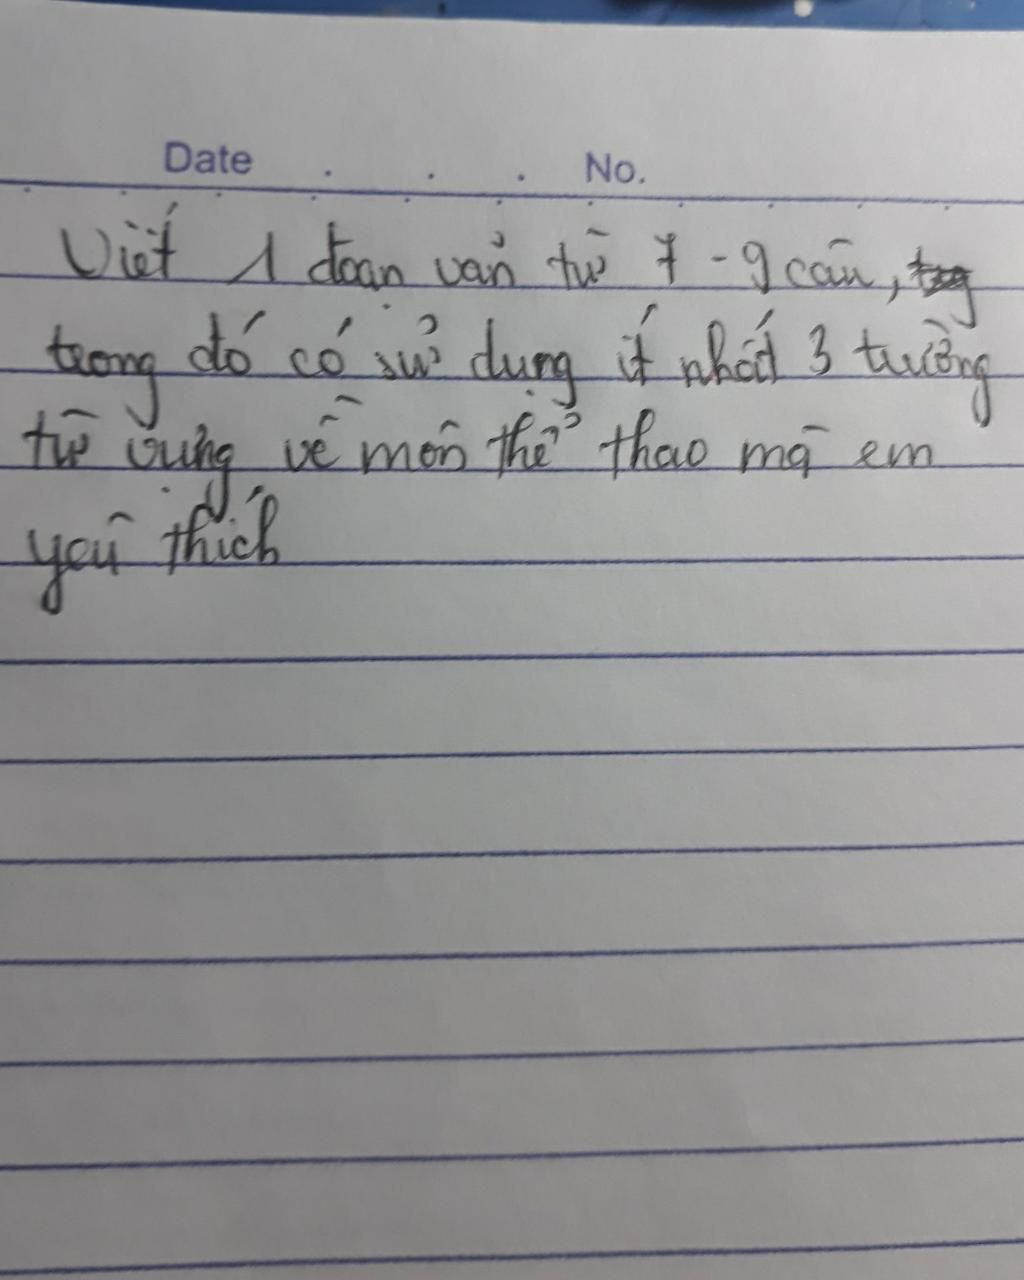 Date . . . No.
Viết 1 đoạn văn từ 7 - 9 câu,
trong đó có sử dụng ít nhất 3 trường
từ vựng về môn thể thao mà em
yêu thích